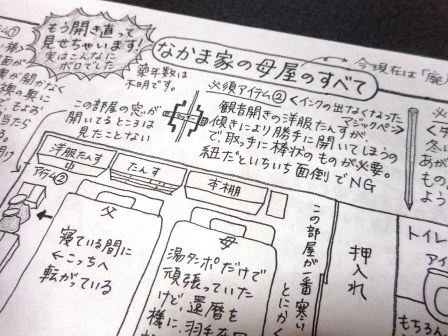 もう開き直って
見せちゃいます!
実はこんなに
ボロでした
なかま家の母屋のすべて
今現在は「
築年数は
不明です。
必須アイテム②
インクの出なくなった
マジックペン
観音開きの洋服たんすが
傾きにより勝手に開いてしまうの
で、取っ手に棒状のものが必要。
紐だといちいち面倒でNG
この部屋の窓が
開いてるところは
見たことない
洋服たんす
アイテム②
たんす
本棚
父
寝ている間に
←こっちへ
転がっている
母
湯タンポだけで
頑張っていた
けど、還暦を
機に、羽毛
この部屋が一番寒い
とにかく
押入れ
トイレ
もちろん